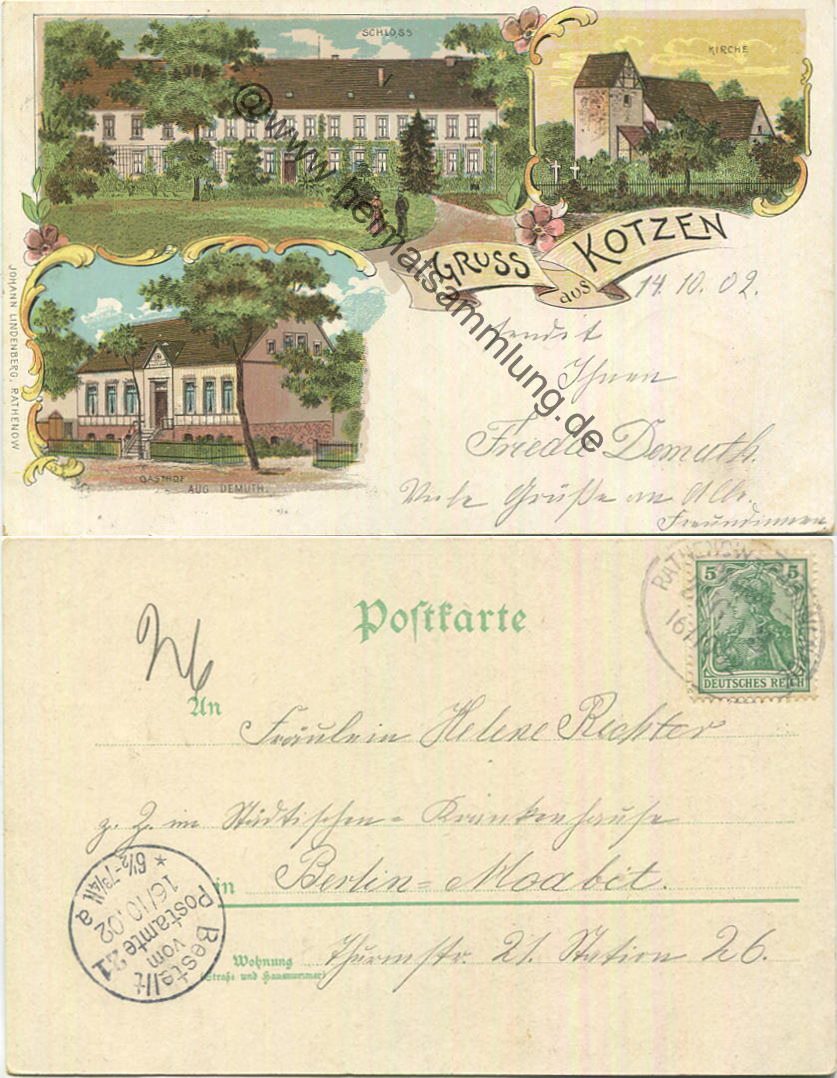 SCHLOSS
KIRCHE
GRUSS aus KOTZEN
14.10.02.
sendet
Ihnen
Friedel Demuth.
Viele Grüße an Alle
Freundinnen
GASTHOF
AUG DEMUTH.
JOHANN LINDENBERG, RATHENOW
@www.heimatsammlung.de
Postkarte
RATHENOW
5 5
DEUTSCHES REICH
26
An
Fräulein Helene Richter
z. Z. im Städtischen Krankenhause
in Berlin-Moabit.
Wohnung
(Straße und Hausnummer)
Thurmstr. 21. Station 26.
Bestellt
vom
Postamte 21
16/10.02
a
* 6½-7¾N